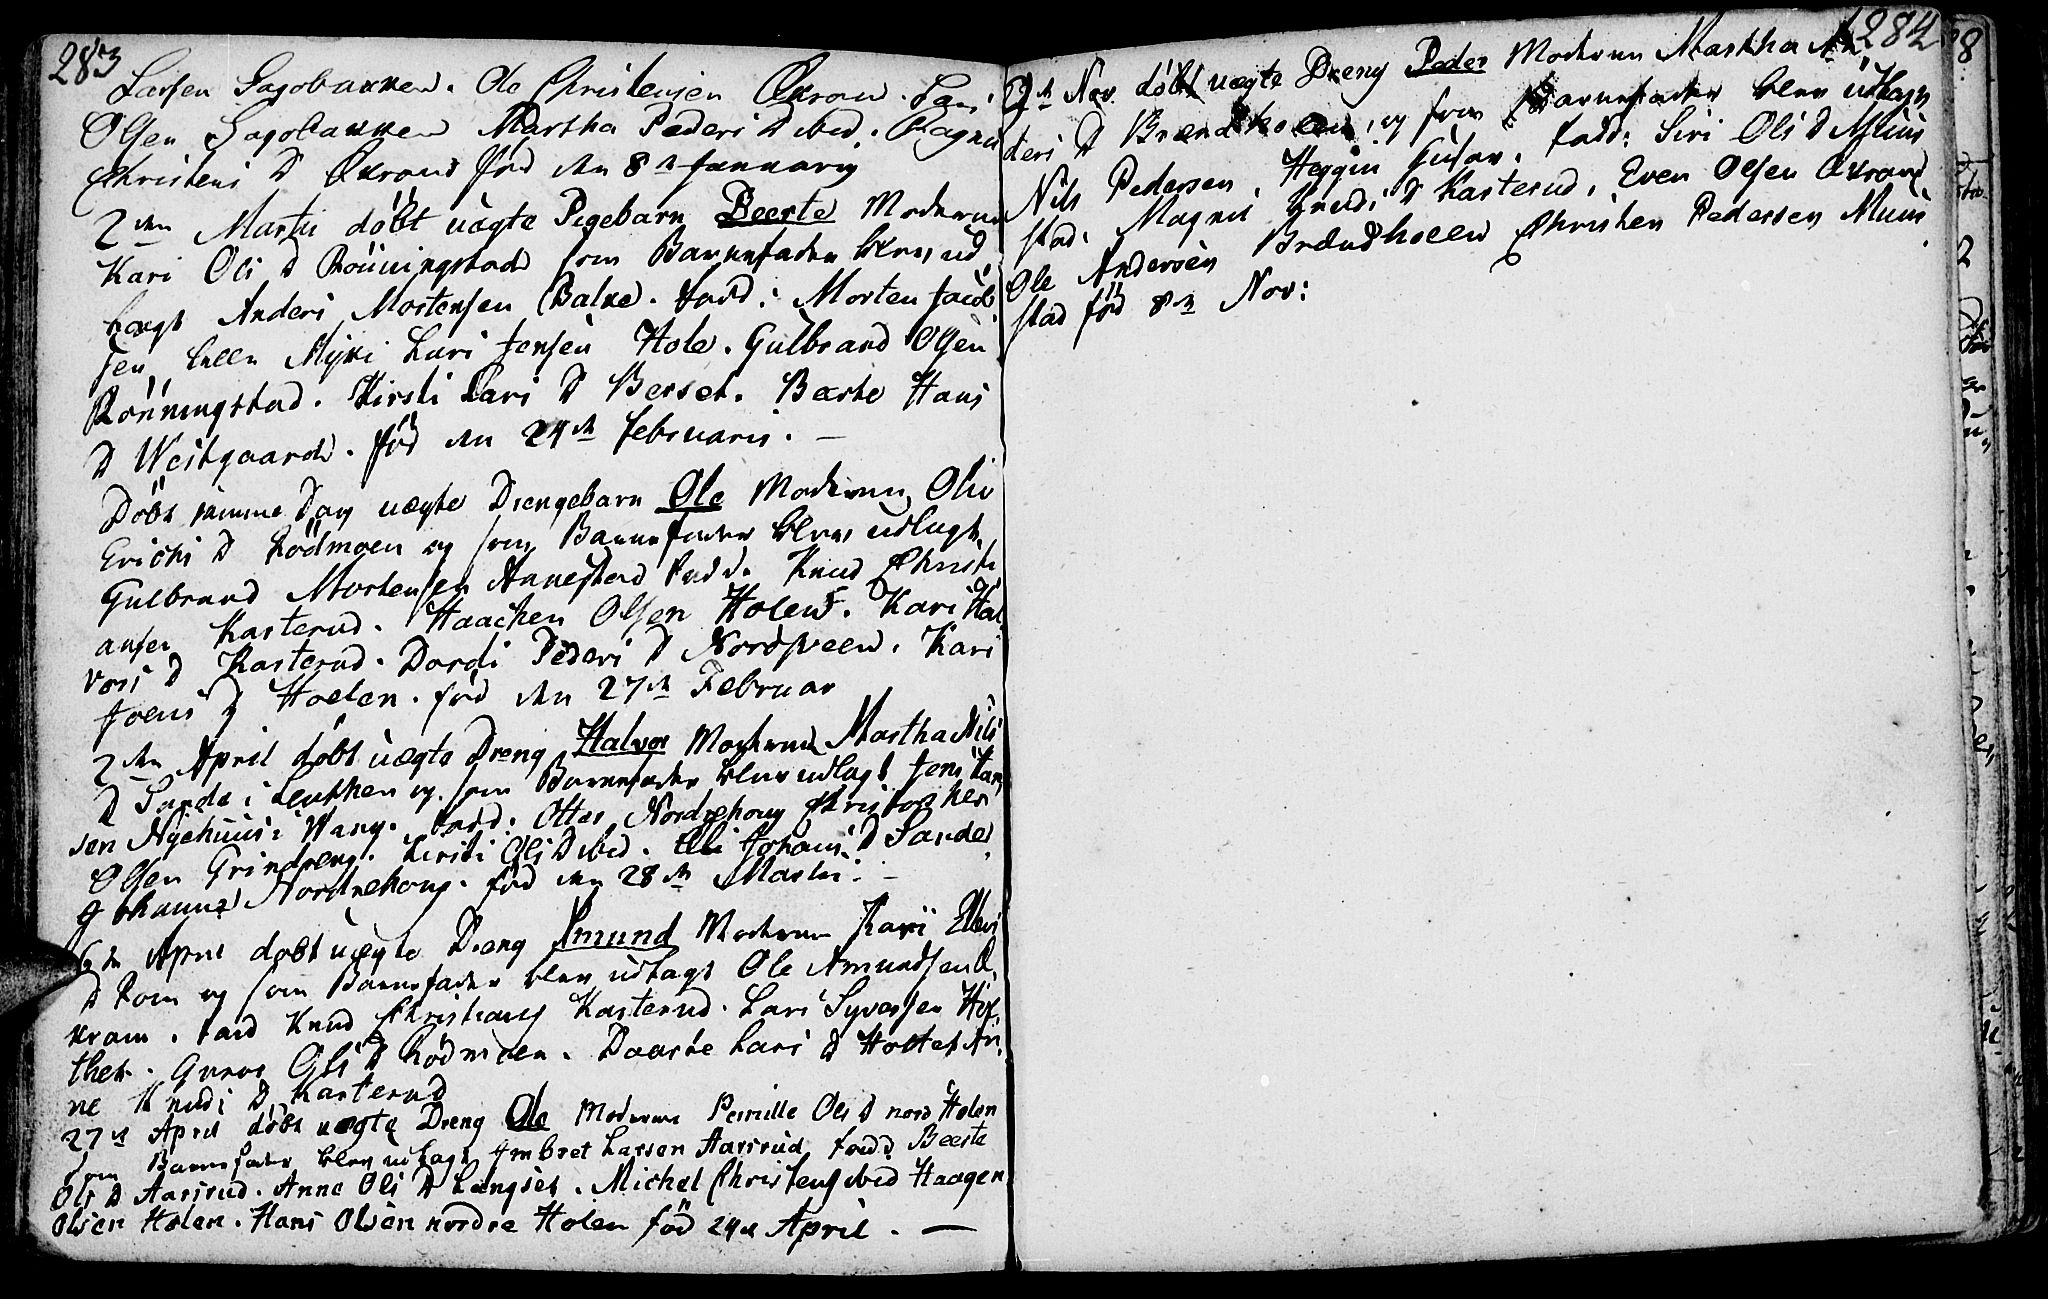 283
Larsen Sagobakken. Ole Christensen Økrand. Lars
Olsen Sagobakken Martha Peders D ibid. Ragnil
Christens D Økrand fød den 8de Januarij
2den Martii döbt uægte Pigebarn Beerte Moderen
Kari Ols D Rönningstad som Barnefader blev ud
lagt Anders Mortensen Balke. fadd: Morten Jacob
sen Myki Lars Jensen Hole. Gulbrand Olsen
Rönningstad. Kirsti Lars D Berset. Bærte Hans
D Westgaard. fød den 24de februarii. —
Döbt samme Dag uægte Drengebarn Ole Moderen Oliv
Erichs D Rödmoen og som Barnefader blev udlagt
Gulbrand Mortensen Annestad fadd. Knud Christi
ansen Kasterud. Haachen Olsen Holen. Kari Hal
vors D Kasterud. Dordi Peders D Nordsveen. Kari
Joens D Hoelen. fød den 27de Februar
2den April döbt uægte Dreng Halvor Moderen Martha Nils
D Sande i Leuthen og som Barnefader blev udlagt Jens
sen Nyehuus i Wang. fadd. Otter Nordrehoug Christopher
Olsen Grindreng. Kirsti Ols D ibid. Eli Johans D Sande
Johanne Nordrehoug. fød den 28de Martii. —
6te April döbt uægte Dreng Amund Moderen Kari
D Rom og som Barnefader blev udlagt Ole Amundsen Ö
kram. fadd Knud Christians Kasterud. Lars Syversen
thet. Guroe Ols D Rödmoen. Daarte Lars D Holtet An
ne Knuds D Kasterud
27de April döbt uægte Dreng Ole Moderen Pernille Ols D nord Holen
som Barnefader blev udlagt Embret Larsen Aasrud fadd. Beerte
Ols D Aasrud. Anne Ols D Langset. Michel Christens ibid Haagen
Olsen Holen. Hans Olsen nordre Holen fød 24de April. —
284
9de Nov. döbt uægte Dreng Peder Moderen Martha An
ders D Brændholen, og som Barnefader blev udlagt
Nils Pedersen, Heggin Gusar. fadd: Siri Ols D Mus
stad. Magnil Knuds D Kasterud, Even Olsen Økrand
Ole Andersen Brændholen Christen Pedersen Mus
stad fød 8de Nov: